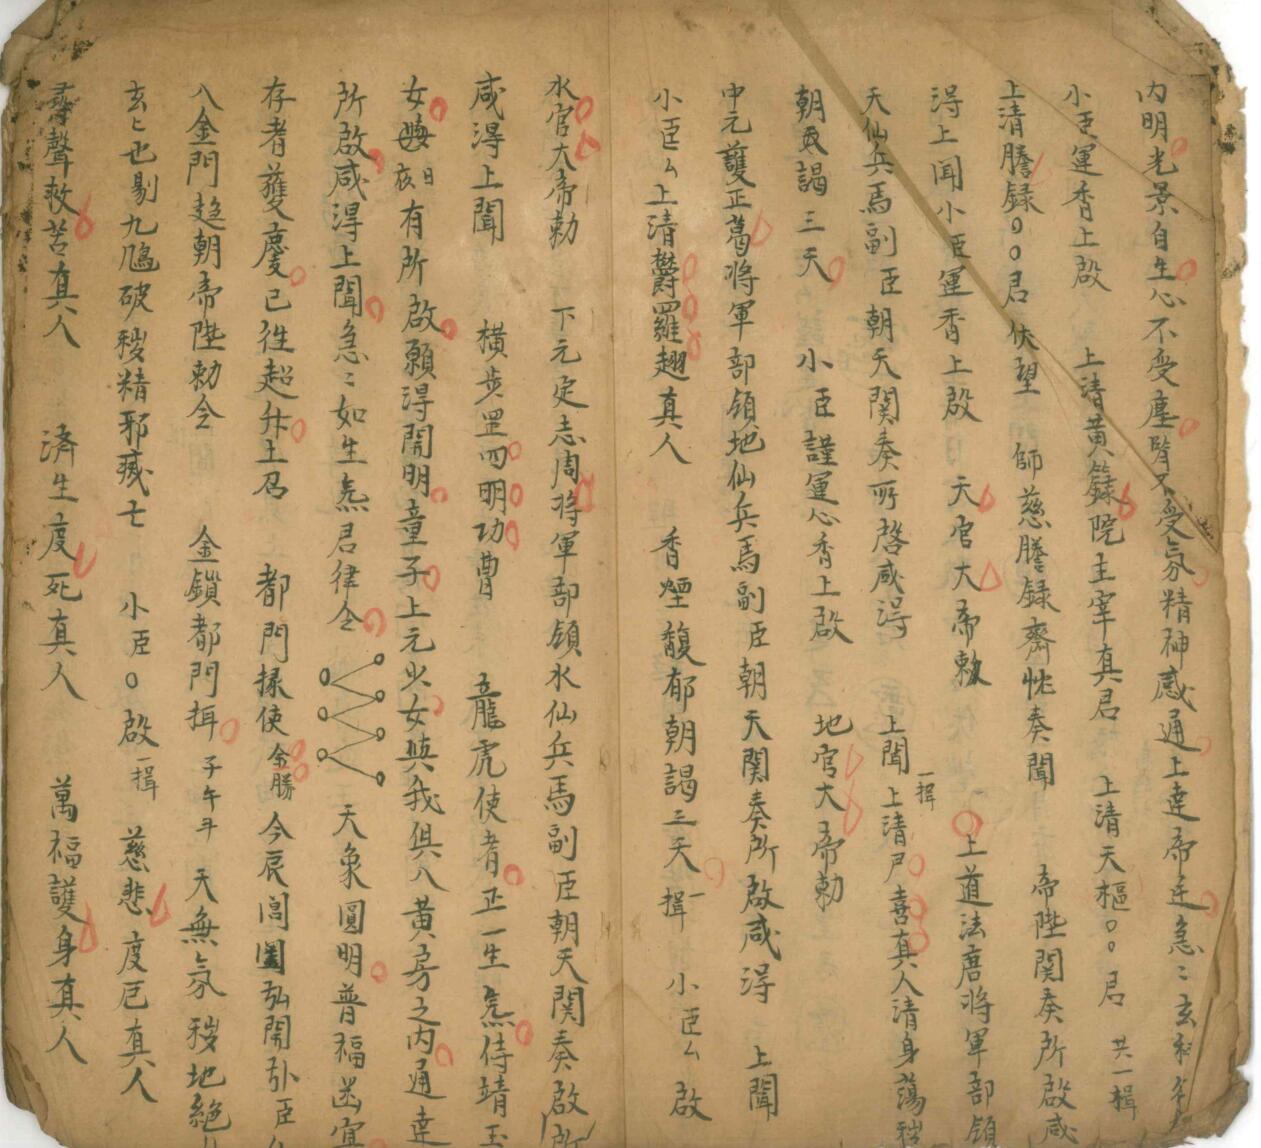 內明光景自生心不受塵腎不受氛精神感通上達帝廷急〻玄科
小臣運香上啟　上清黃籙院主宰真君　上清天樞〇〇君　共一揖
上清謄錄〇〇君伏望　師慈謄錄齋忱奏聞　帝陛関奏所啟咸
淂上闻小臣運香上啟　天官大帝勅　上道法唐将軍部領
天仙兵馬副臣朝天関奏所啓咸淂　上聞一揖　上清尸喜真人清身蕩穢
朝哀謁三天　小臣謹運心香上啟　地官大帝勅
中元護正葛将軍部領地仙兵馬副臣朝天関奏所啟咸淂　上聞
小臣厶上清鬱羅翹真人　香煙馥郁朝謁三天一揖　小臣厶啟
水官大帝勅　下元定志周将軍部領水仙兵馬副臣朝天関奏啟所
咸淂上聞　橫步罡四明功曹　龍虎使者正一生炁侍靖玉
女每亥日有所啟願淂開明童子上元少女與我俱入黃房之內通達
所啟咸淂上聞急〻如生炁君律令　天象圓明普福函宜
存者獲慶已徃超升上启　都門掾使金勝今辰閶闔弘開引臣
入金門趋朝帝陛勅令　金鎖都門揖子午斗　天無氛穢地絕
玄〻也剔九鴟破穢精邪滅亡　小臣〇啟一揖　慈悲度厄真人
尋聲救苦真人　済生度死真人　萬福護身真人